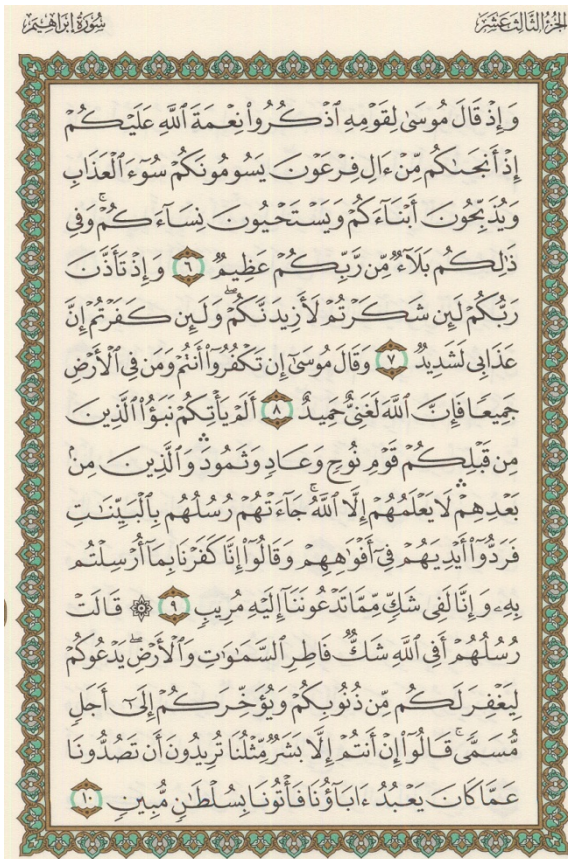 الجزء الثالث عشر
سورة إبراهيم
وَإِذْ قَالَ مُوسَىٰ لِقَوْمِهِ ٱذْكُرُوا۟ نِعْمَةَ ٱللَّهِ عَلَيْكُمْ
إِذْ أَنجَىٰكُم مِّنْ ءَالِ فِرْعَوْنَ يَسُومُونَكُمْ سُوٓءَ ٱلْعَذَابِ
وَيُذَبِّحُونَ أَبْنَآءَكُمْ وَيَسْتَحْيُونَ نِسَآءَكُمْ ۚ وَفِى
ذَٰلِكُم بَلَآءٌ مِّن رَّبِّكُمْ عَظِيمٌ ٦ وَإِذْ تَأَذَّنَ
رَبُّكُمْ لَئِن شَكَرْتُمْ لَأَزِيدَنَّكُمْ ۖ وَلَئِن كَفَرْتُمْ إِنَّ
عَذَابِى لَشَدِيدٌ ٧ وَقَالَ مُوسَىٰٓ إِن تَكْفُرُوٓا۟ أَنتُمْ وَمَن فِى ٱلْأَرْضِ
جَمِيعًا فَإِنَّ ٱللَّهَ لَغَنِىٌّ حَمِيدٌ ٨ أَلَمْ يَأْتِكُمْ نَبَؤُا۟ ٱلَّذِينَ
مِن قَبْلِكُمْ قَوْمِ نُوحٍ وَعَادٍ وَثَمُودَ ۛ وَٱلَّذِينَ مِنۢ
بَعْدِهِمْ ۛ لَا يَعْلَمُهُمْ إِلَّا ٱللَّهُ ۚ جَآءَتْهُمْ رُسُلُهُم بِٱلْبَيِّنَٰتِ
فَرَدُّوٓا۟ أَيْدِيَهُمْ فِىٓ أَفْوَٰهِهِمْ وَقَالُوٓا۟ إِنَّا كَفَرْنَا بِمَآ أُرْسِلْتُم
بِهِۦ وَإِنَّا لَفِى شَكٍّ مِّمَّا تَدْعُونَنَآ إِلَيْهِ مُرِيبٍ ٩ ۞ قَالَتْ
رُسُلُهُمْ أَفِى ٱللَّهِ شَكٌّ فَاطِرِ ٱلسَّمَٰوَٰتِ وَٱلْأَرْضِ ۖ يَدْعُوكُمْ
لِيَغْفِرَ لَكُم مِّن ذُنُوبِكُمْ وَيُؤَخِّرَكُمْ إِلَىٰٓ أَجَلٍ
مُّسَمًّى ۚ قَالُوٓا۟ إِنْ أَنتُمْ إِلَّا بَشَرٌ مِّثْلُنَا تُرِيدُونَ أَن تَصُدُّونَا
عَمَّا كَانَ يَعْبُدُ ءَابَآؤُنَا فَأْتُونَا بِسُلْطَٰنٍ مُّبِينٍ ١٠